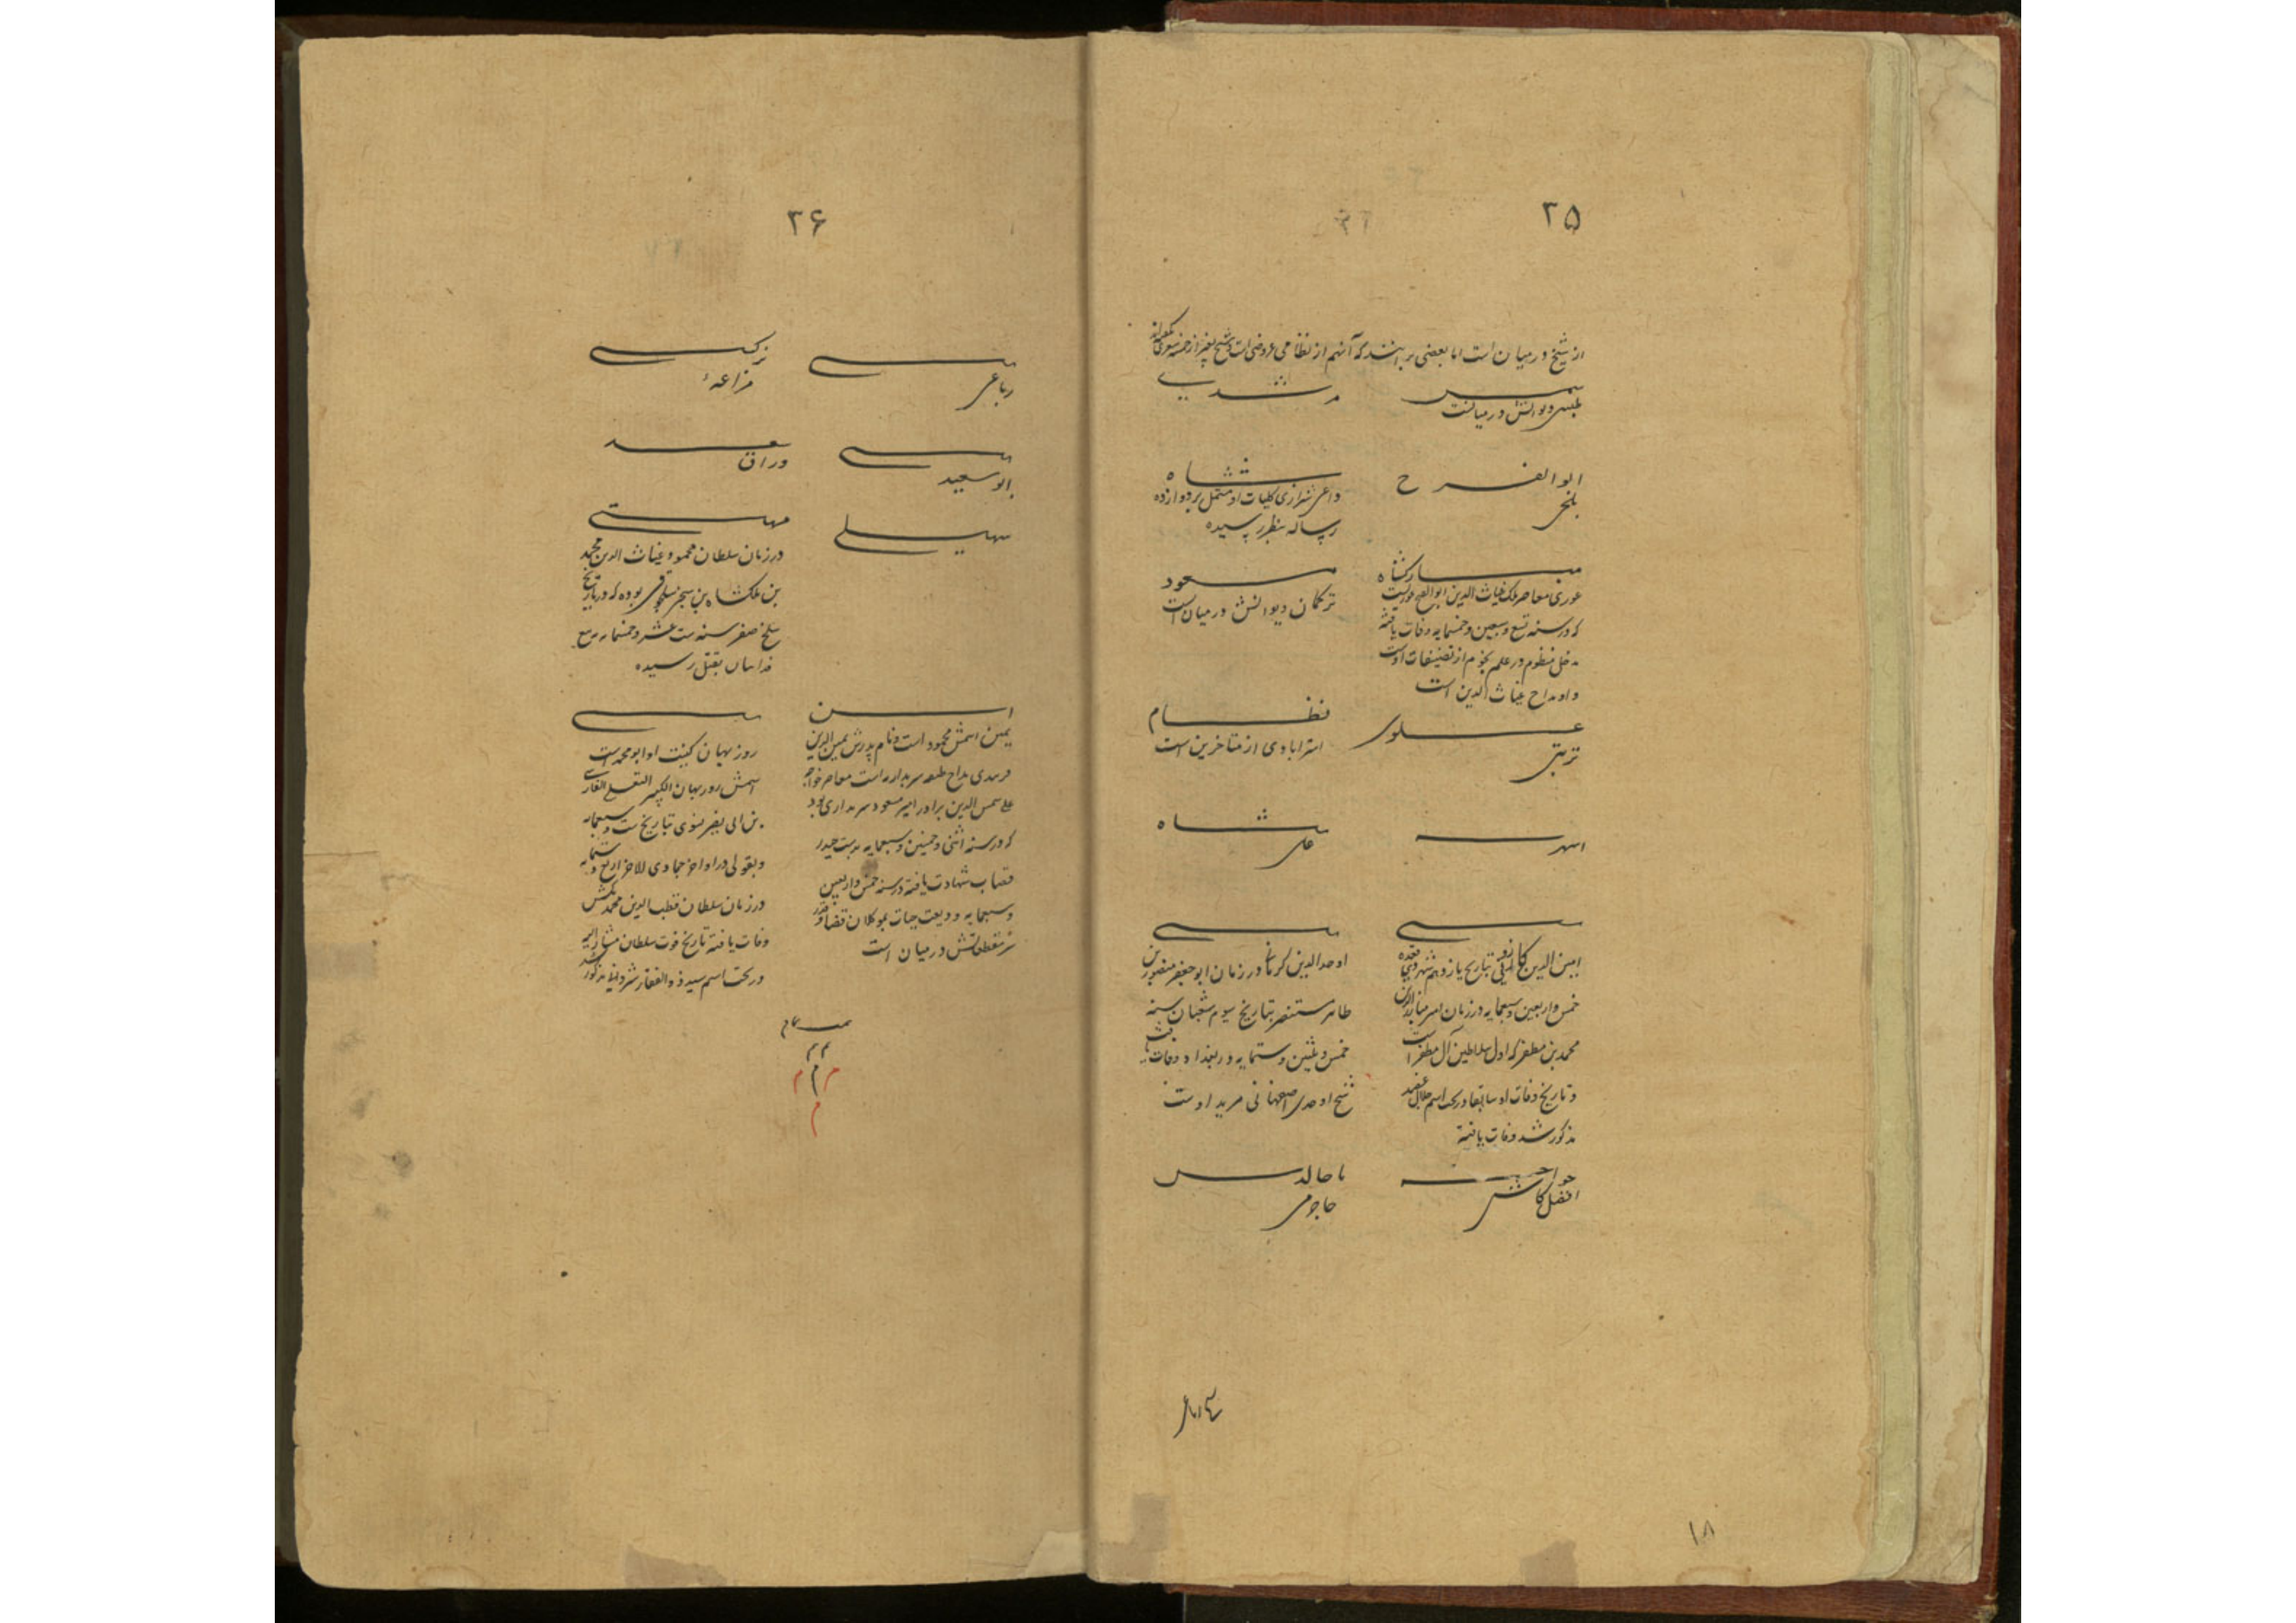 ۲۵
از شیخ درمیان است اما بعضی برانند که آنهم از نظامی عروضی است و شیخ بغیر از خمسه شعری نگفته
شمس
طبسی دیوانش درمیانست
مرشدی
ابوالفرح
بلخی
شاه
داعی شیرازی کلیات او مشتمل بر دوازده
رساله بنظر رسیده
مبارکشاه
غوری معاصر ملک غیاث الدین ابوالفتح غوریست
که در سنه تسع و سبعین و خمسمایه وفات یافته
مدخل منظوم در علم نجوم از تصنیفات اوست
و او مداح غیاث الدین است
مسعود
ترکمان دیوانش درمیان است
علوی
تربتی
نظام
استرابادی از متاخرین است
اسهر
شاه
علی
امین الدین کازرونی بتاریخ یازدهم شهر ذیقعده
خمس و اربعین و سبعمایه در زمان امیر مبارزالدین
محمد بن مظفر که اول سلاطین آل مظفر است
و تاریخ وفات او سابقا در تحت اسم جلال عضد
مذکور شد وفات یافته
اوحد الدین کرمانی در زمان ابو جعفر منصور بن
طاهر مستنصر بتاریخ سیوم شعبان سنه
خمس و ثلثین و ستمایه در بغداد وفات یافت
شیخ اوحدی اصفهانی مرید اوست
خواجه
افضل کاشی
بابا جمال الدین
جاجرمی
۱۸
۲۶
رباعی
نرکسی
مراغهٔ
ابو سعید
سعد
وراق
سهیلی
مهستی
در زمان سلطان محمود غیاث الدین محمد
بن ملکشاه بن سنجر سلجوقی بوده که در تاریخ
سلخ صفر سنه ست عشر و خمسمایه
فداییان بقتل رسیده
ابن
یمین اسمش محمود است و نام پدرش یمین الدین
مداح طبقه سربداریه است معاصر خواجه
علی شمس الدین برادر امیر مسعود سربداری بود
که در سنه اثنی و خمسین و سبعمایه بدست حیدر
قصاب شهادت یافته در سنه خمس و اربعین
و سبعمایه ودیعت حیات بموکلان قضا و قدر
مقطعاتش درمیان است
روزبهان کنیت او ابو محمد است
اسمش روزبهان الکبیر
بن ابی نصر بتاریخ ست و سبعمایه
و بقولی در اواخر جمادی الاخر اربع و ستمایه
در زمان سلطان قطب الدین محمد تکش
وفات یافته تاریخ فوت سلطان مشار الیه
در تحت اسم سید ذوالفقار شروانی مذکور شد
تمت تمام
م م
م م م
م